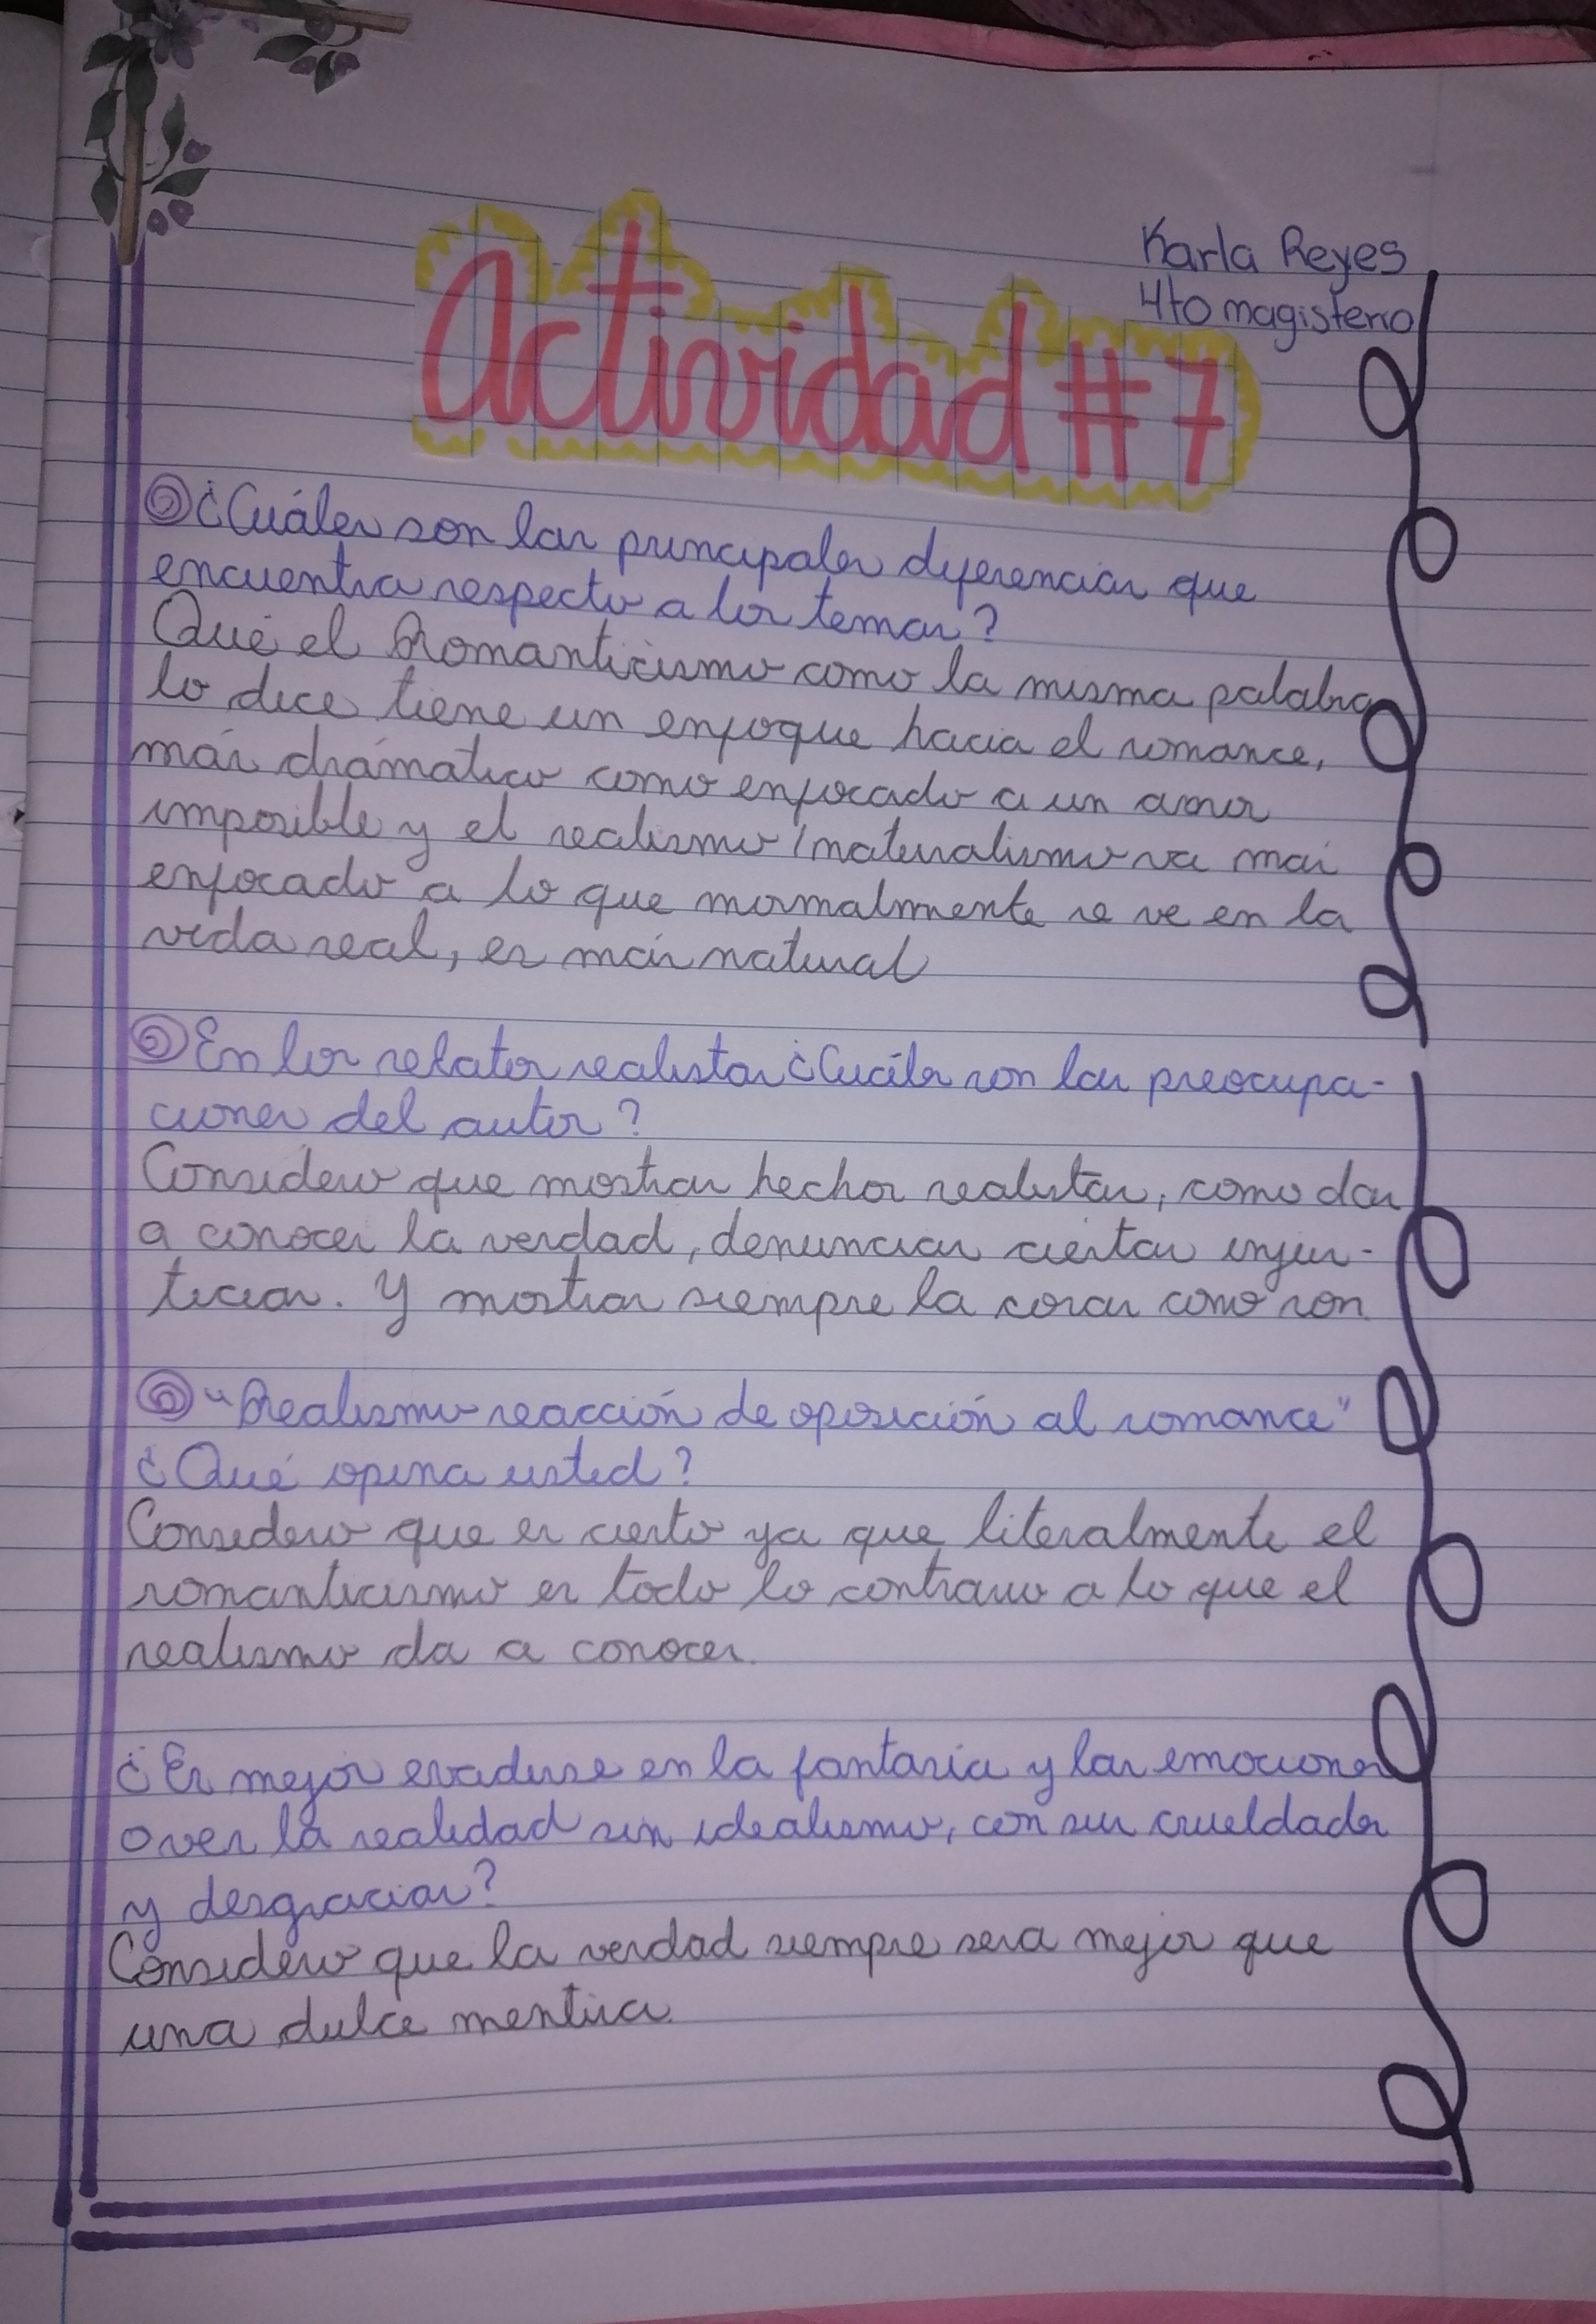 Karla Reyes
4to magisterio
Actividad #7
¿Cuáles son las principales diferencias que
encuentra respecto a los temas?
Qué el Romanticismo como la misma palabra
lo dice tiene un enfoque hacia el romance,
más drámatico como enfocado a un amor
imposible y el realismo/naturalismo va mas
enfocado a lo que normalmente se ve en la
vida real, es más natural
En los relatos realistas ¿Cuáles son las preocupa-
ciones del autor?
Considero que mostrar hechos realistas, como dar
a conocer la verdad, denunciar ciertas injus-
ticias. Y mostrar siempre la cosas como son
"Realismo reacción de oposición al romance"
¿Qué opina usted?
Considero que es cierto ya que literalmente el
romanticismo es todo lo contrario a lo que el
realismo da a conocer.
¿Es mejor evadirse en la fantasía y las emociones
o ver la realidad sin idealismo, con sus crueldades
y desgracias?
Considero que la verdad siempre sera mejor que
una dulce mentira.